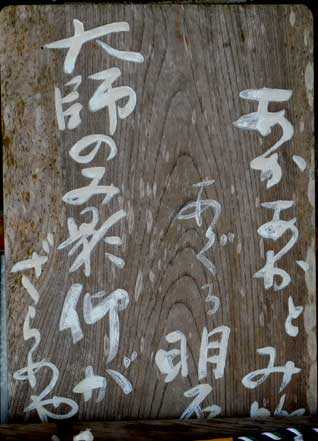 あかあかとみ
めぐる明石
大師のみ影仰が
ざらめや